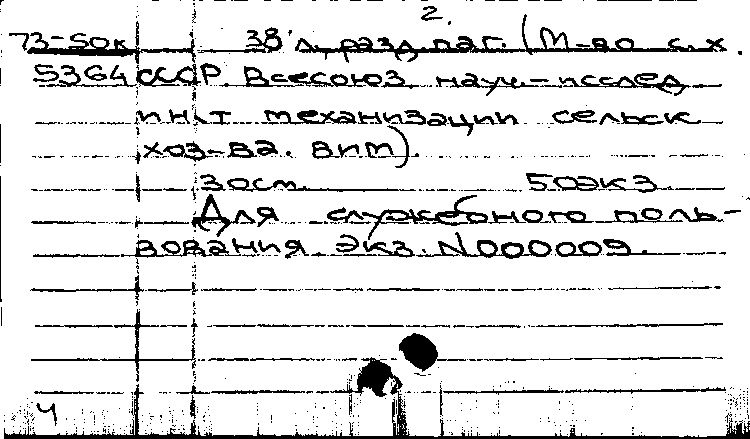 2.
73-50к 38 л. разд. паг. (М-во с.х.
5364 СССР. Всесоюз. науч.-исслед.
ин-т механизации сельск.
хоз-ва. ВИМ).
30см. 50экз
Для служебного поль-
зования. Экз. N000009.
4